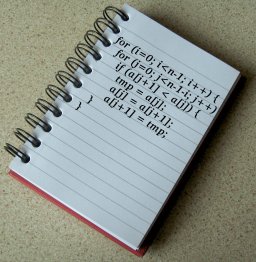 for (i=0; i<n-1; i++) {
for (j=0; j<n-1-i; j++)
if (a[j+1] < a[j]) {
tmp = a[j];
a[j] = a[j+1];
a[j+1] = tmp;
} }